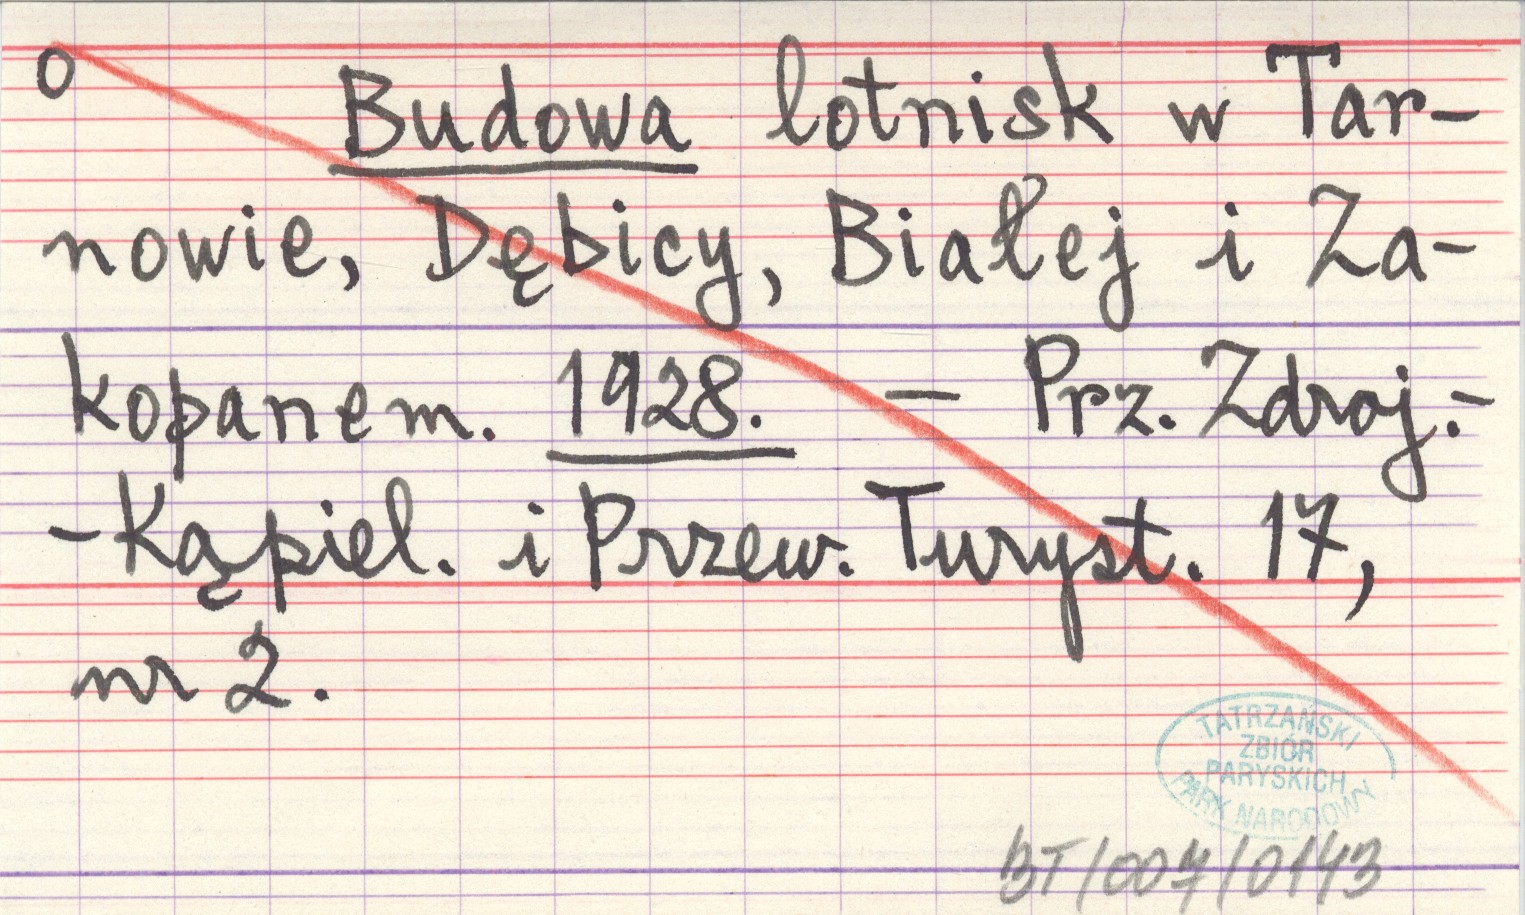 o Budowa lotnisk w Tar-
nowie, Dębicy, Białej i Za-
kopanem. 1928. — Prz. Zdroj.-
-Kąpiel. i Przew. Turyst. 17,
nr 2.
TATRZAŃSKI
ZBIÓR
PARYSKICH
PARK NARODOWY
BT/007/0143